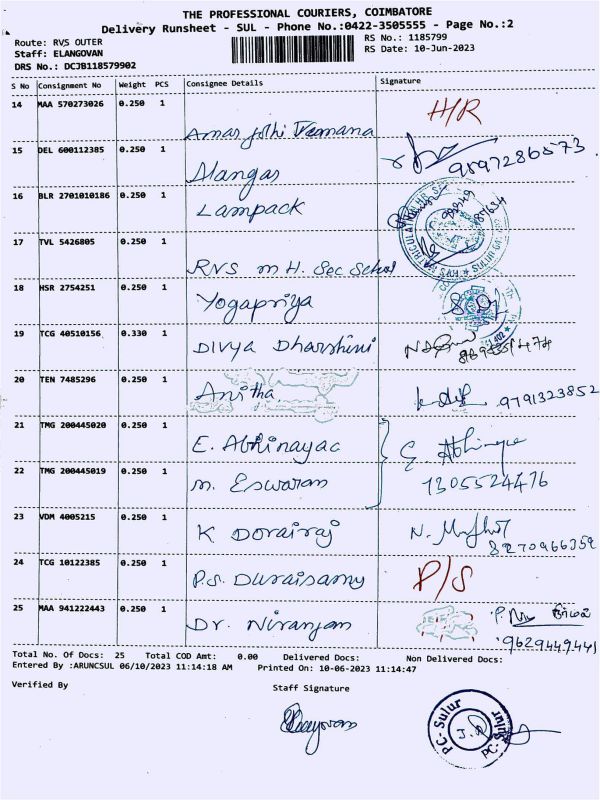 THE PROFESSIONAL COURIERS, COIMBATORE
Delivery Runsheet - SUL - Phone No.:0422-3505555 - Page No.:2
Route: RVS OUTER RS No.: 1185799
Staff: ELANGOVAN RS Date: 10-Jun-2023
DRS No.: DCJB118579902
S No Consignment No Weight PCS Consignee Details Signature
14 MAA 570273026 0.250 1 H/R
Amar Jothi
15 DEL 600112385 0.250 1 9597286573
Alangar
16 BLR 2701010186 0.250 1
Lampack
17 TVL 5426805 0.250 1
RVS m H. Sec School
18 HSR 2754251 0.250 1
Yogapriya
19 TCG 40510156 0.330 1
Divya Dharshini
20 TEN 7485296 0.250 1
Anitha 9791323852
21 TMG 200445020 0.250 1
E. Abhinayaa E. Abhinaya
22 TMG 200445019 0.250 1
m. Eswaran 1305524476
23 VDM 4005215 0.250 1
K Dorairaj 8270966359
24 TCG 10122385 0.250 1 P/S
P.S. Duraisamy
25 MAA 941222443 0.250 1
Dr. Niranjan 9629449441
Total No. Of Docs: 25 Total COD Amt: 0.00 Delivered Docs: Non Delivered Docs:
Entered By :ARUNCSUL 06/10/2023 11:14:18 AM Printed On: 10-06-2023 11:14:47
Verified By Staff Signature
PC-Sulur